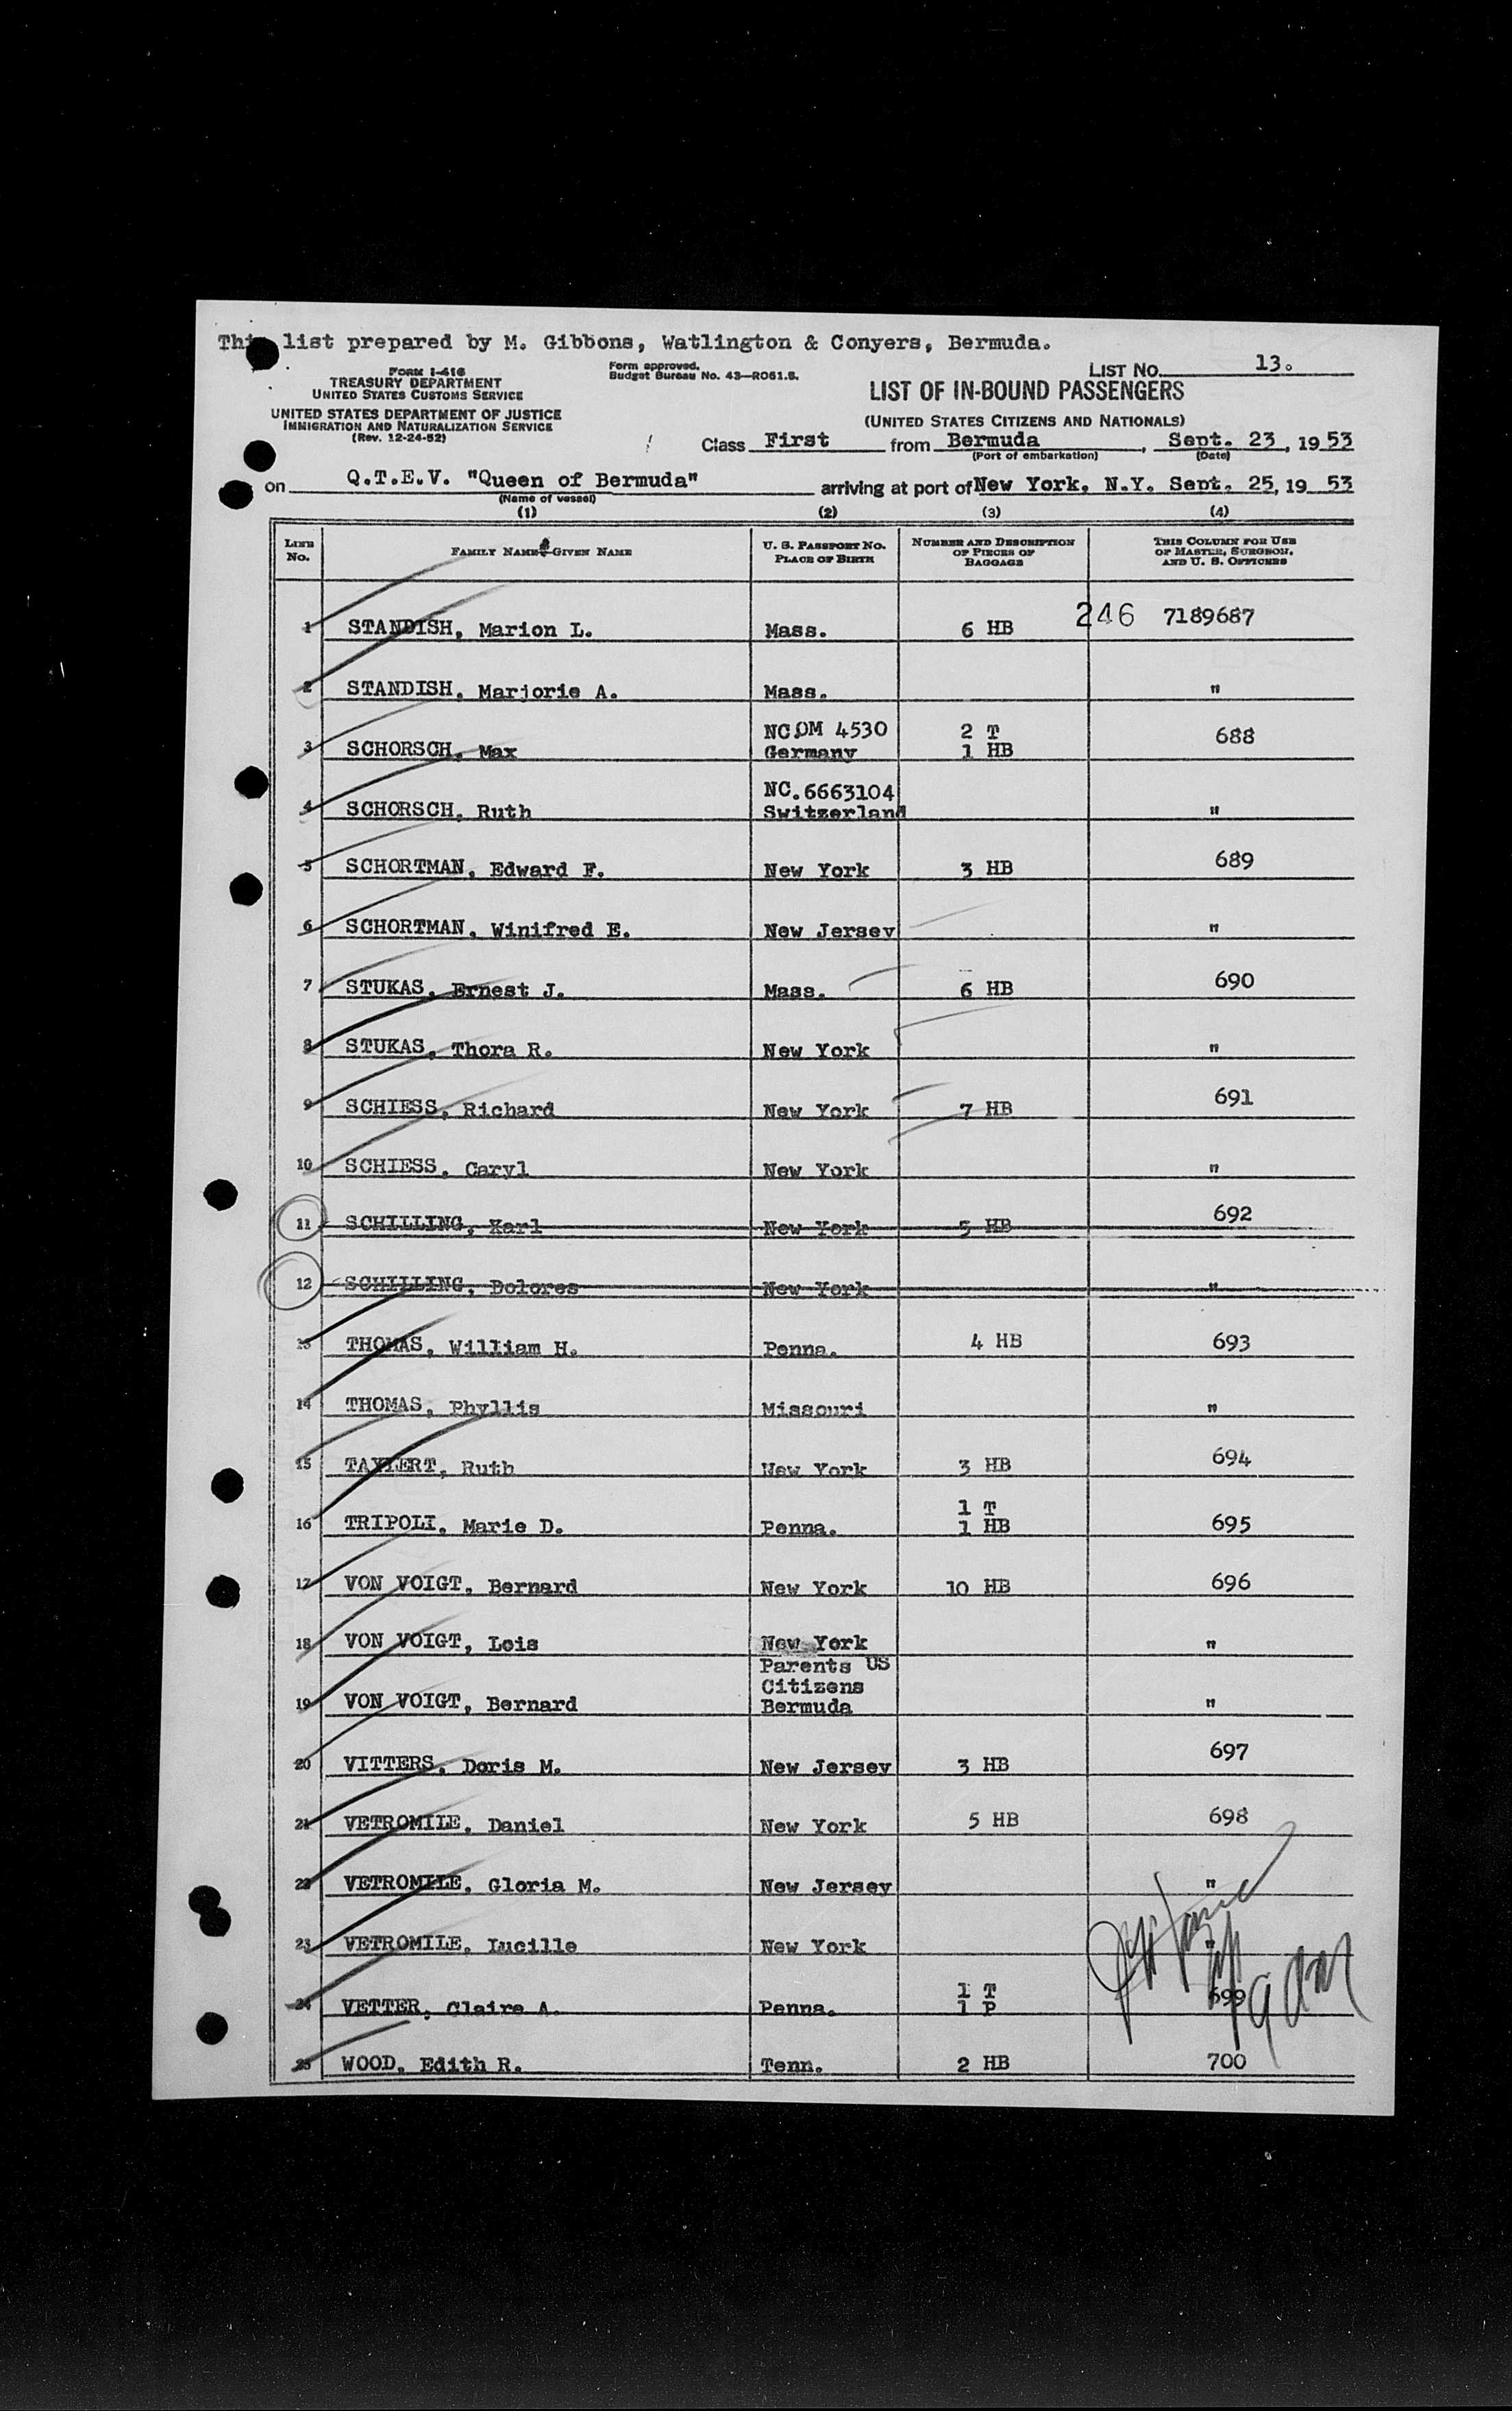 This list prepared by M. Gibbons, Watlington & Conyers, Bermuda.
Form I-416
TREASURY DEPARTMENT
UNITED STATES CUSTOMS SERVICE
UNITED STATES DEPARTMENT OF JUSTICE
IMMIGRATION AND NATURALIZATION SERVICE
(Rev. 12-24-52)
Form approved.
Budget Bureau No. 43—R061.5.
LIST No. 13.
LIST OF IN-BOUND PASSENGERS
(UNITED STATES CITIZENS AND NATIONALS)
Class First from Bermuda, Sept. 23, 1953
(Port of embarkation) (Date)
on Q.T.E.V. "Queen of Bermuda" arriving at port of New York, N.Y. Sept. 25, 19 53
(Name of vessel)
(1) (2) (3) (4)
LINE No. FAMILY NAME—GIVEN NAME U. S. PASSPORT No. PLACE OF BIRTH NUMBER AND DESCRIPTION OF PIECES OF BAGGAGE THIS COLUMN FOR USE OF MASTER, SURGEON, AND U. S. OFFICERS
1 STANDISH, Marion L. Mass. 6 HB 246 7189687
2 STANDISH, Marjorie A. Mass. "
3 SCHORSCH, Max NC.DM 4530 Germany 2 T 1 HB 688
4 SCHORSCH, Ruth NC.6663104 Switzerland "
5 SCHORTMAN, Edward F. New York 3 HB 689
6 SCHORTMAN, Winifred E. New Jersey "
7 STUKAS, Ernest J. Mass. 6 HB 690
8 STUKAS, Thora R. New York "
9 SCHIESS, Richard New York 7 HB 691
10 SCHIESS, Caryl New York "
11 SCHILLING, Karl New York 5 HB 692
12 SCHILLING, Dolores New York "
13 THOMAS, William H. Penna. 4 HB 693
14 THOMAS, Phyllis Missouri "
15 Ruth New York 3 HB 694
16 TRIPOLI, Marie D. Penna. 1 T 1 HB 695
17 VON VOIGT, Bernard New York 10 HB 696
18 VON VOIGT, Lois New York "
19 VON VOIGT, Bernard Parents US Citizens Bermuda "
20 VITTERS, Doris M. New Jersey 3 HB 697
21 VETROMILE, Daniel New York 5 HB 698
22 VETROMILE, Gloria M. New Jersey "
23 VETROMILE, Lucille New York "
24 VETTER, Claire A. Penna. 1 T 1 P 699
25 WOOD, Edith R. Tenn. 2 HB 700